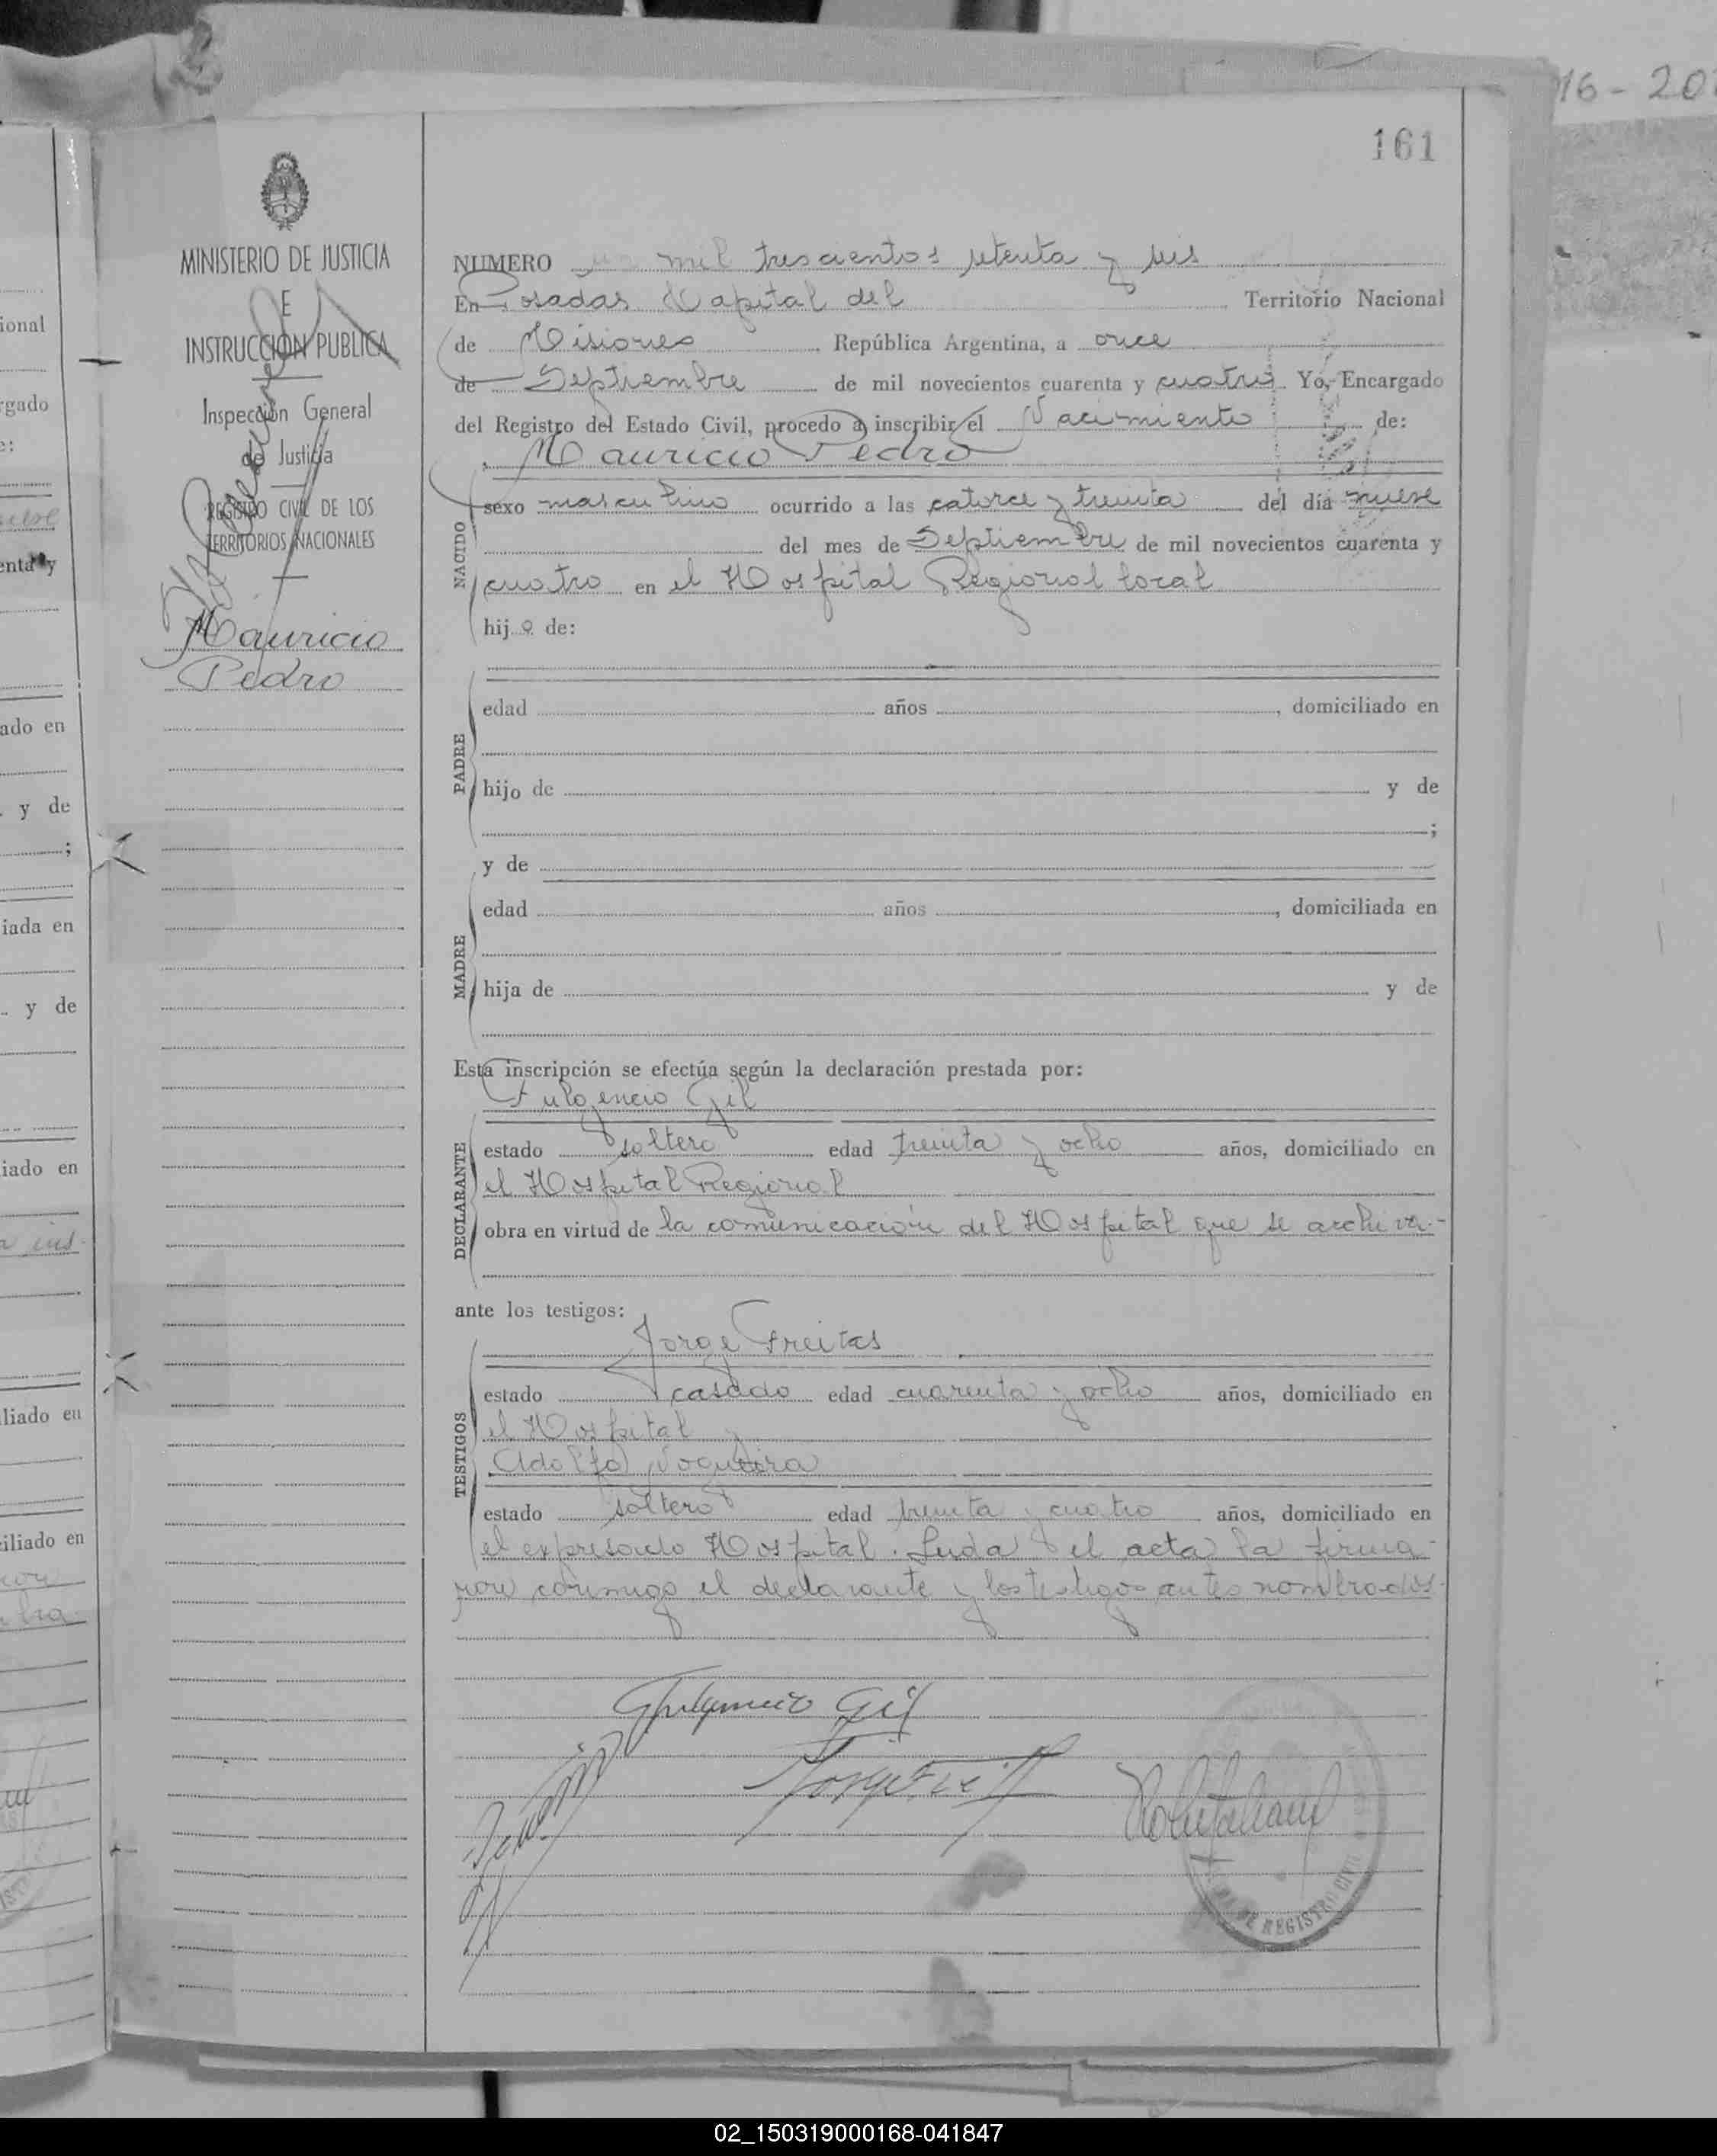 16-20
161
MINISTERIO DE JUSTICIA
E
INSTRUCCION PUBLICA
Inspección General
de Justicia
REGISTRO CIVIL DE LOS
TERRITORIOS NACIONALES
Mauricio
Pedro
NUMERO un mil trescientos setenta y seis
En Posadas Capital del Territorio Nacional
de Misiones República Argentina, a once
de Septiembre de mil novecientos cuarenta y cuatro. Yo, Encargado
del Registro del Estado Civil, procedo a inscribir el Nacimiento de:
Mauricio Pedro
NACIDO
sexo masculino ocurrido a las catorce y treinta del día nueve
del mes de Septiembre de mil novecientos cuarenta y
cuatro en el Hospital Regional local
hijo de:
PADRE
edad años , domiciliado en
hijo de y de
;
y de
MADRE
edad años , domiciliada en
hija de y de
Esta inscripción se efectúa según la declaración prestada por:
Fulgencio Gil
DECLARANTE
estado soltero edad treinta y ocho años, domiciliado en
el Hospital Regional
obra en virtud de la comunicación del Hospital que se archiva.-
ante los testigos:
Jorge Freitas
TESTIGOS
estado casado edad cuarenta y ocho años, domiciliado en
el Hospital y
Adolfo Nogueira
estado soltero edad treinta y cuatro años, domiciliado en
el expresado Hospital. Leida el acta la firma-
ron conmigo el declarante y los testigos antes nombrados.
Fulgencio Gil
Jorge Freitas
DE REGISTRO CIVIL
ional
rgado
e:
enta y
ado en
y de
;
iada en
y de
iado en
liado en
ciliado en
02_150319000168-041847